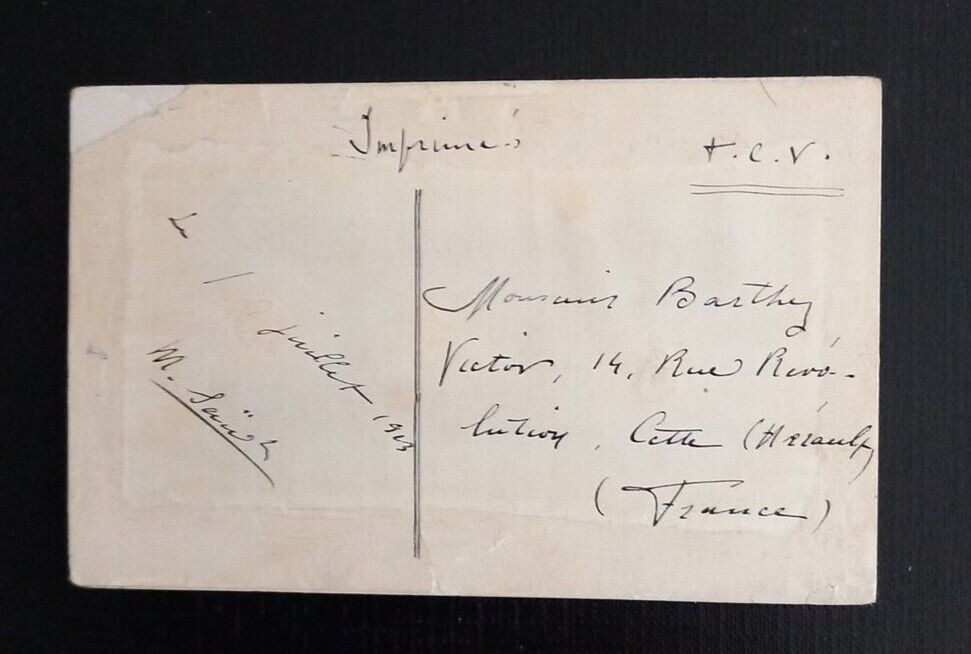 Imprimés
T.C.V.
Le 1 juillet 1913
M.
Monsieur Barthy
Victor, 14, Rue Révo-
lution, Cette (Hérault)
(France)